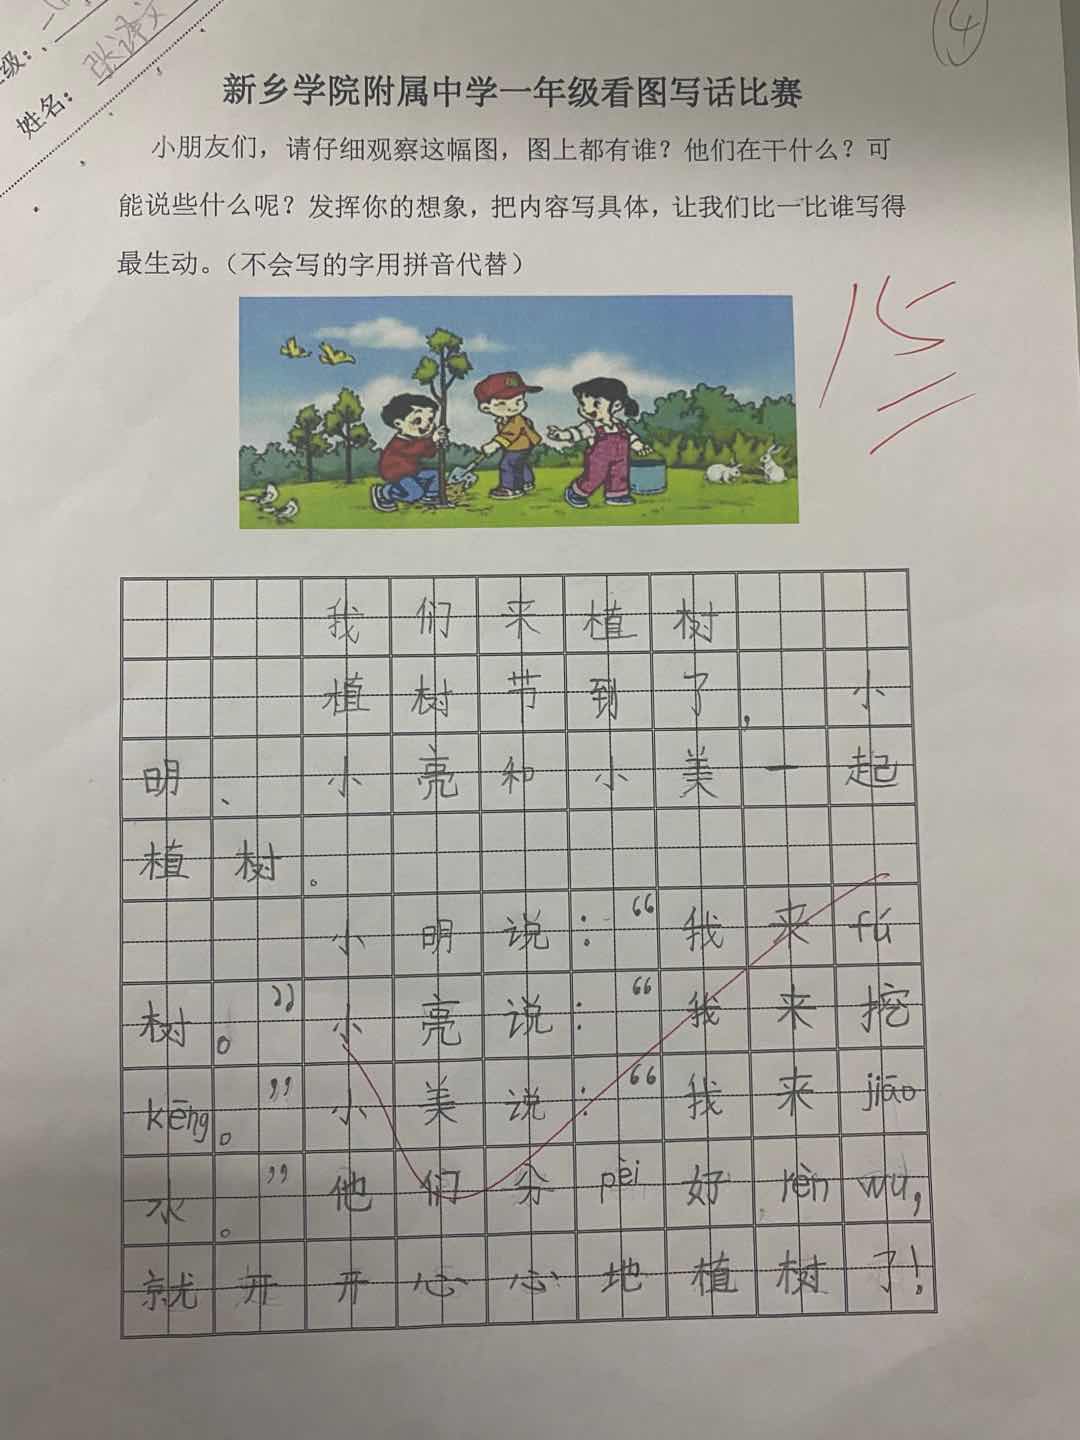 级：
姓名：张
④
新乡学院附属中学一年级看图写话比赛
小朋友们，请仔细观察这幅图，图上都有谁？他们在干什么？可
能说些什么呢？发挥你的想象，把内容写具体，让我们比一比谁写得
最生动。（不会写的字用拼音代替）
15
我们来植树
植树节到了，小
明、小亮和小美一起
植树。
小明说：“我来fú
树。”小亮说：“我来挖
kēng。”小美说：“我来jiāo
水。”他们分pèi好rènwu，
就开开心心地植树了！